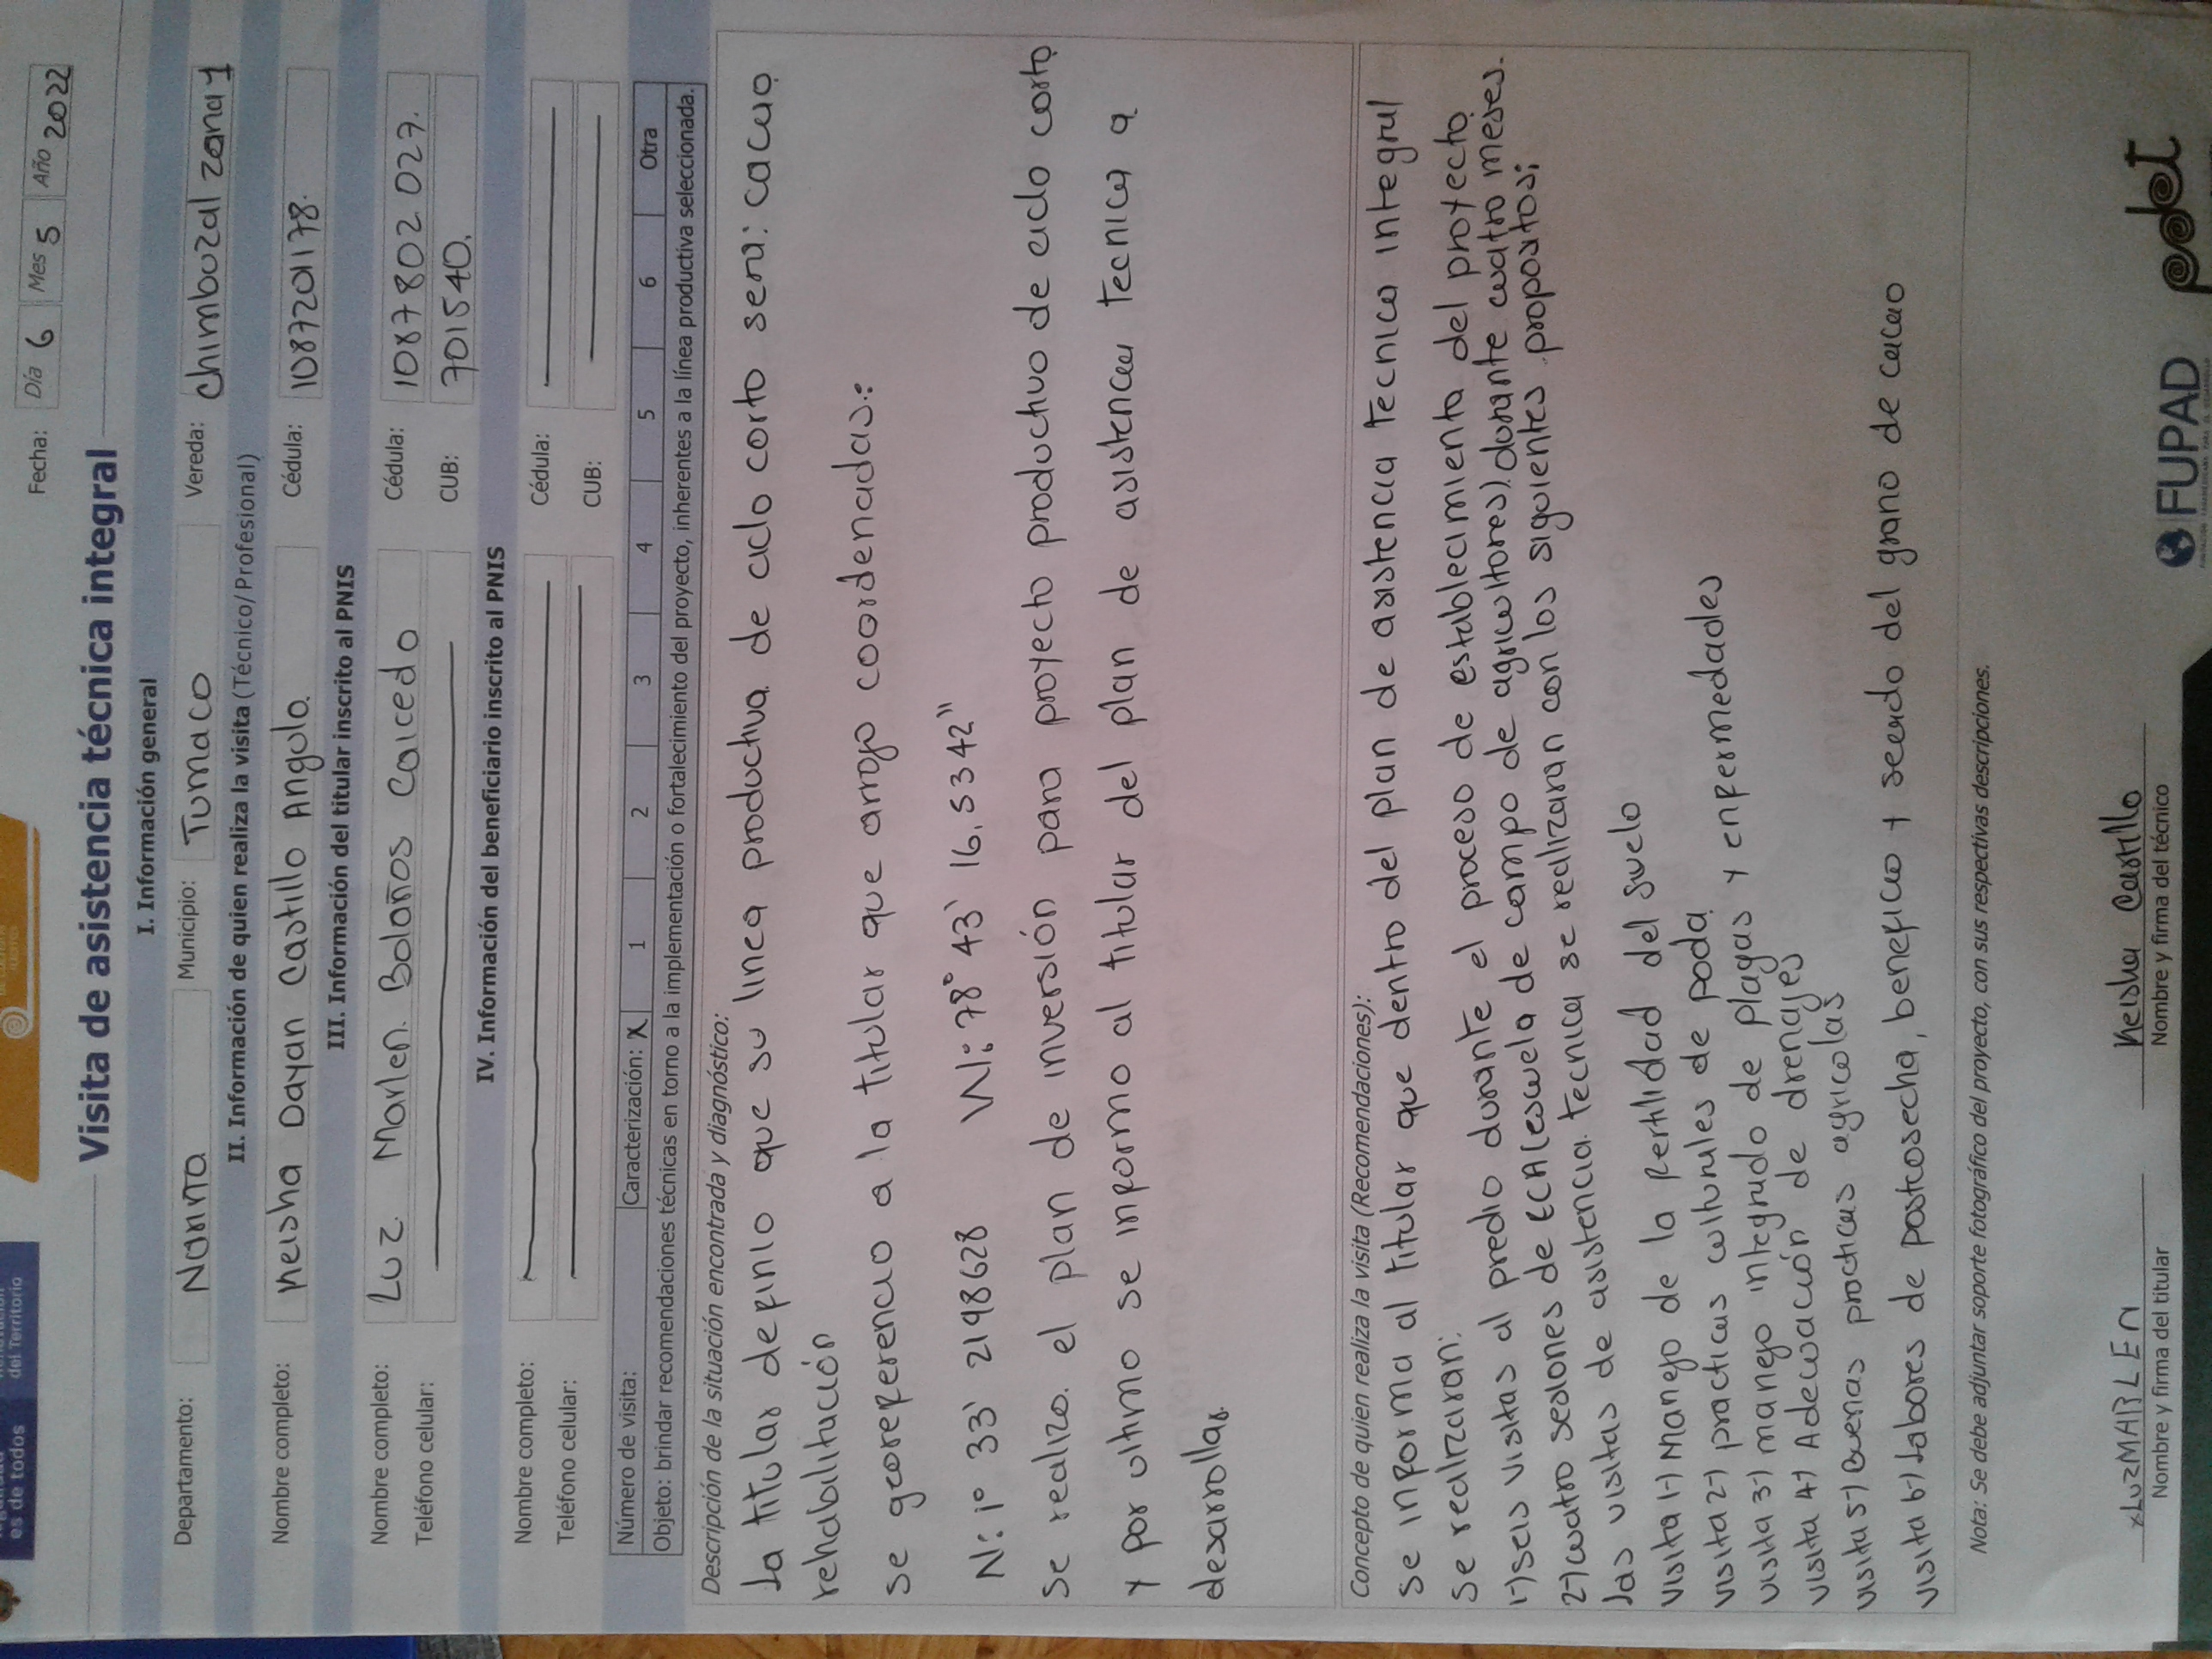 es de todos
del Territorio
Fecha: Día 6 Mes 5 Año 2022
Visita de asistencia técnica integral
I. Información general
Departamento: Nariño Municipio: Tumaco Vereda: Chimbuzal zona 1
II. Información de quien realiza la visita (Técnico/Profesional)
Nombre completo: Keisha Dayan Castillo Angulo. Cédula: 1087201178.
III. Información del titular inscrito al PNIS
Nombre completo: Luz Marlen Bolaños Caicedo Cédula: 1087802027.
Teléfono celular: CUB: 701540.
IV. Información del beneficiario inscrito al PNIS
Nombre completo: Cédula:
Teléfono celular: CUB:
Número de visita: Caracterización: X 1 2 3 4 5 6 Otra
Objeto: brindar recomendaciones técnicas en torno a la implementación o fortalecimiento del proyecto, inherentes a la línea productiva seleccionada.
Descripción de la situación encontrada y diagnóstico:
La titular definio que su linea productiva de ciclo corto sera: cacao
rehabilitación
se georeferencio a la titular que arrojo coordenadas:
N: 1° 33' 2198628 W: 78° 43' 16,5342"
se realizo el plan de inversión para proyecto productivo de ciclo corto
y por ultimo se informo al titular del plan de asistencia tecnica a
desarrollar.
Concepto de quien realiza la visita (Recomendaciones):
se informa al titular que dentro del plan de asistencia tecnica integral
se realizaran:
1-) seis visitas al predio durante el proceso de establecimiento del proyecto
2-) cuatro sesiones de ECA (escuela de campo de agricultores) durante cuatro meses.
las visitas de asistencia tecnica se realizaran con los siguientes propositos;
visita 1-) Manejo de la fertilidad del suelo
visita 2-) practicas culturales de poda
visita 3-) manejo integrado de plagas y enfermedades
visita 4-) Adecuación de drenajes
visita 5-) Buenas practicas agricolas
visita 6-) labores de postcosecha, beneficio y secado del grano de cacao
Nota: Se debe adjuntar soporte fotográfico del proyecto, con sus respectivas descripciones.
x LuzMARLEN
Nombre y firma del titular
Keisha Castillo
Nombre y firma del técnico
FUPAD
pdet